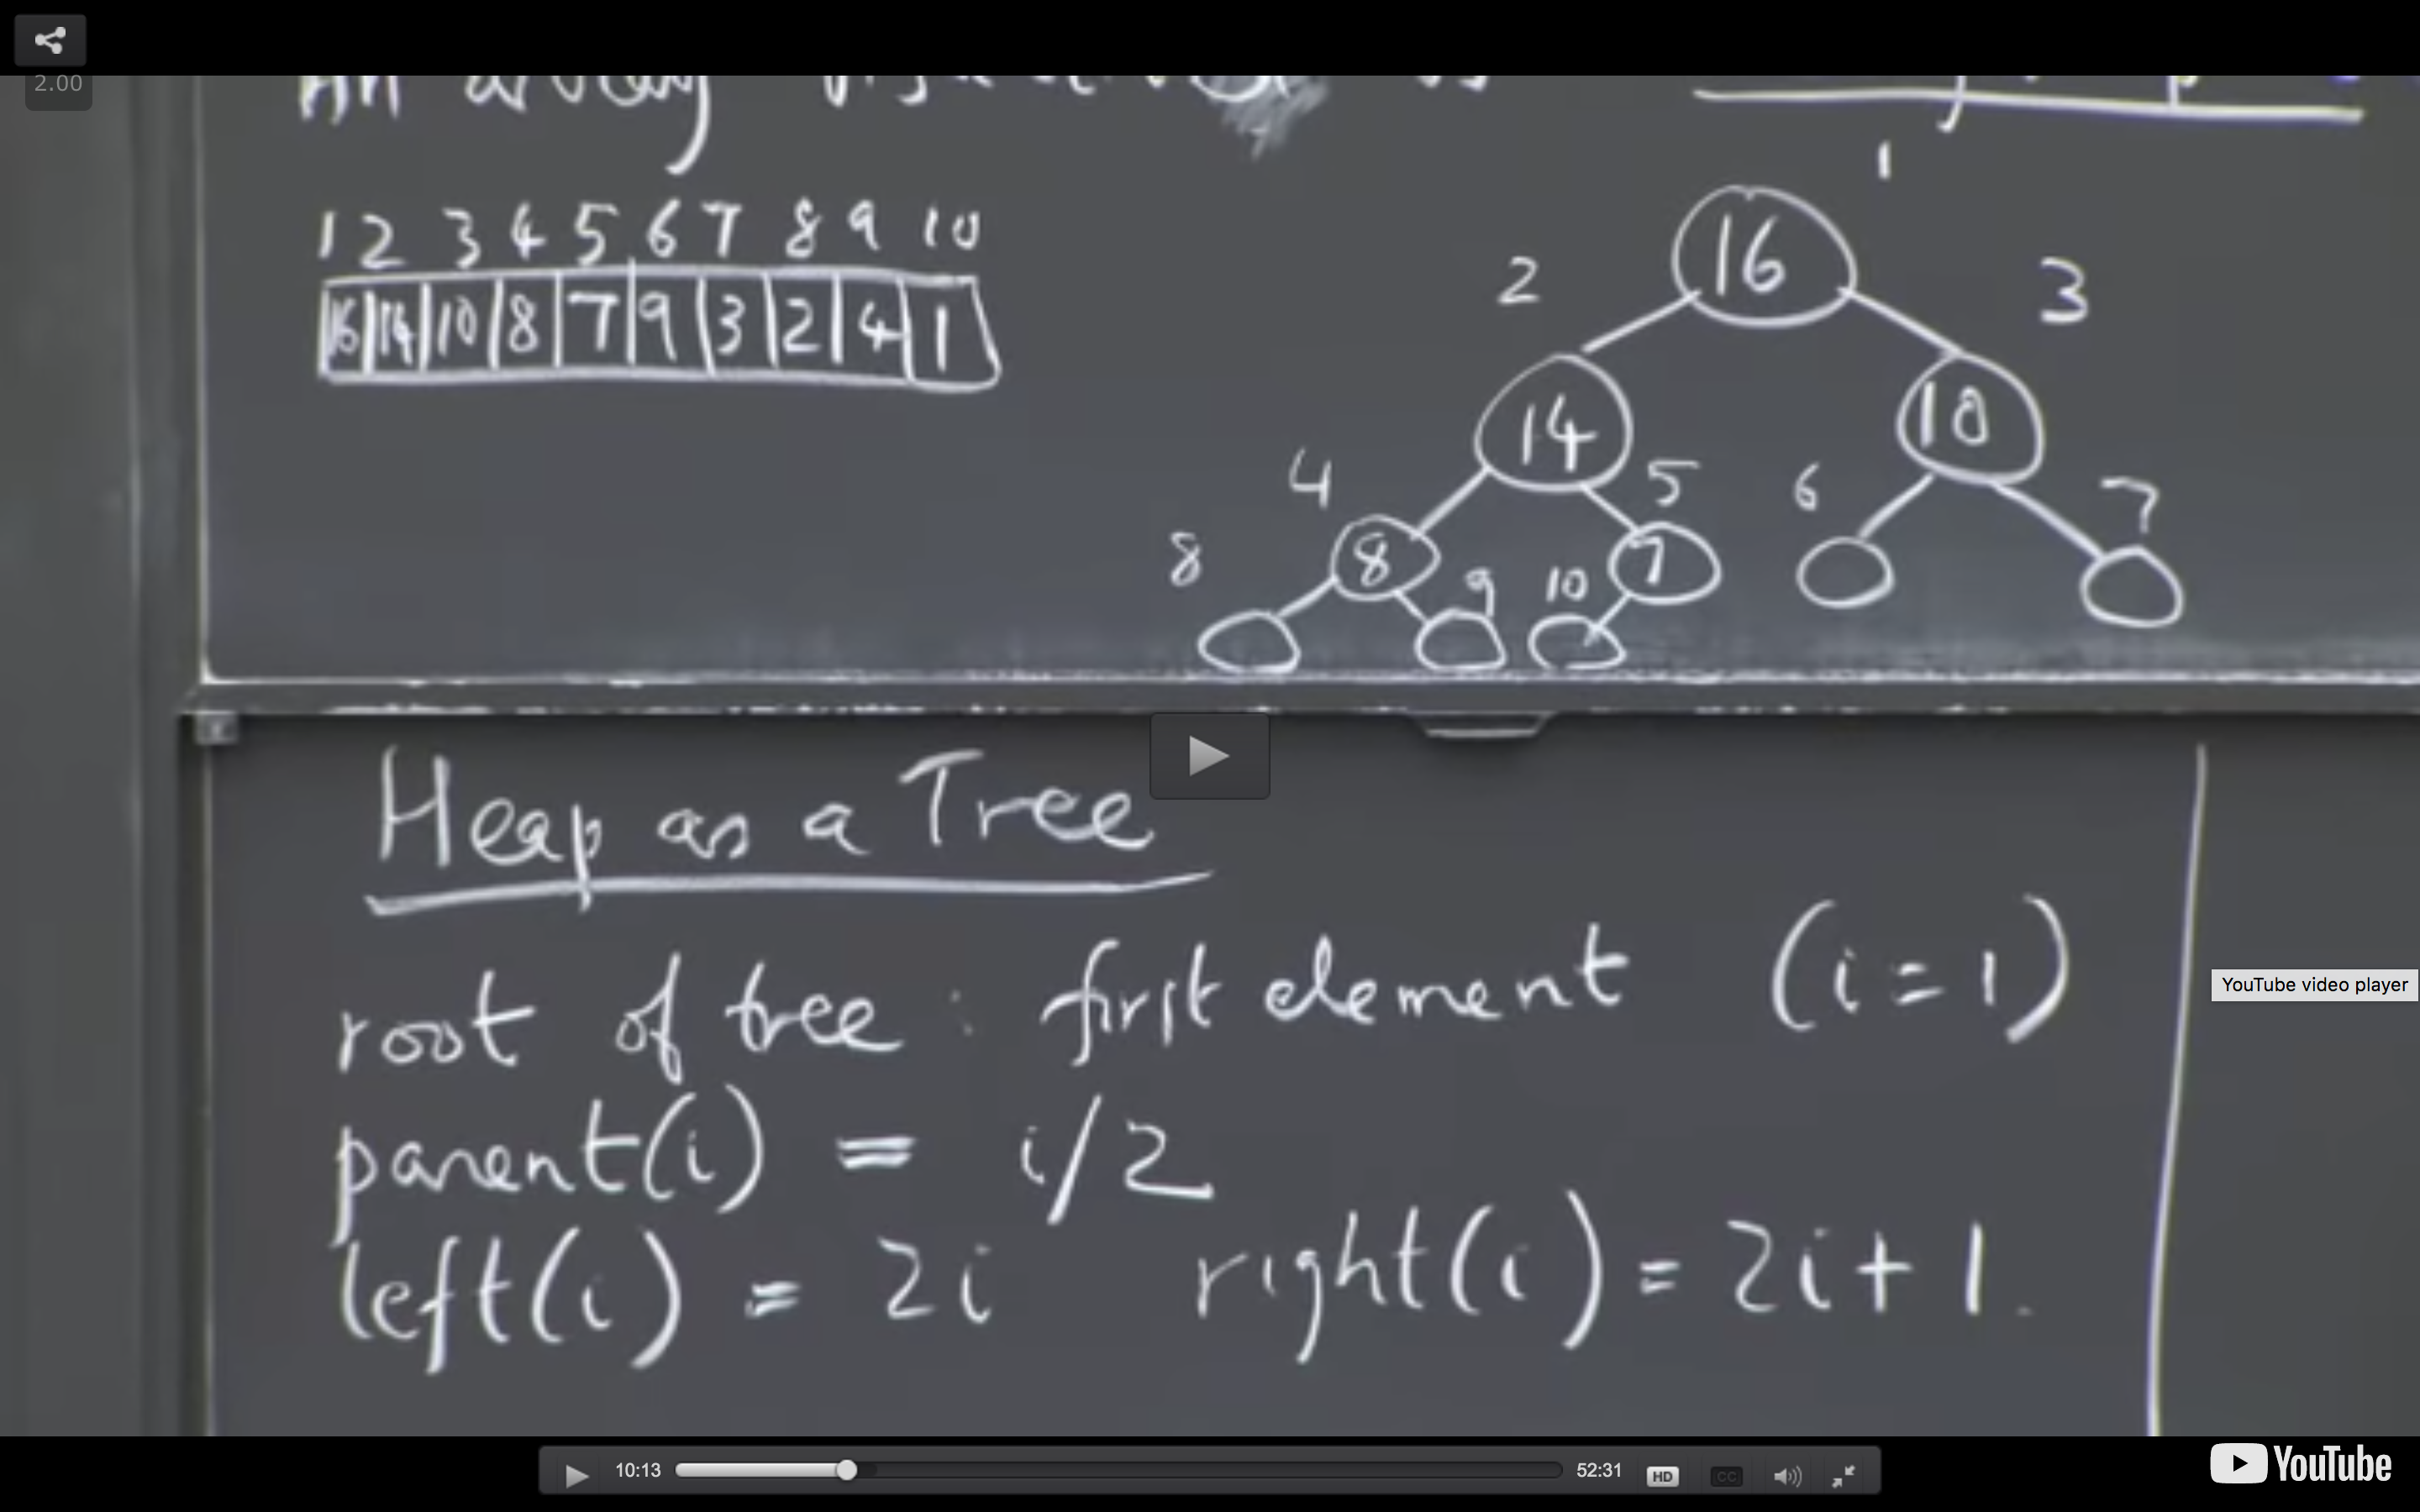 2.00
An array
1 2 3 4 5 6 7 8 9 10
16 14 10 8 7 9 3 2 4 1
1
16
2 3
14 10
4 5 6 7
8 7
8 9 10
Heap as a Tree
root of tree : first element (i = 1)
parent(i) = i/2
left(i) = 2i right(i) = 2i + 1.
YouTube video player
10:13 52:31 HD CC YouTube